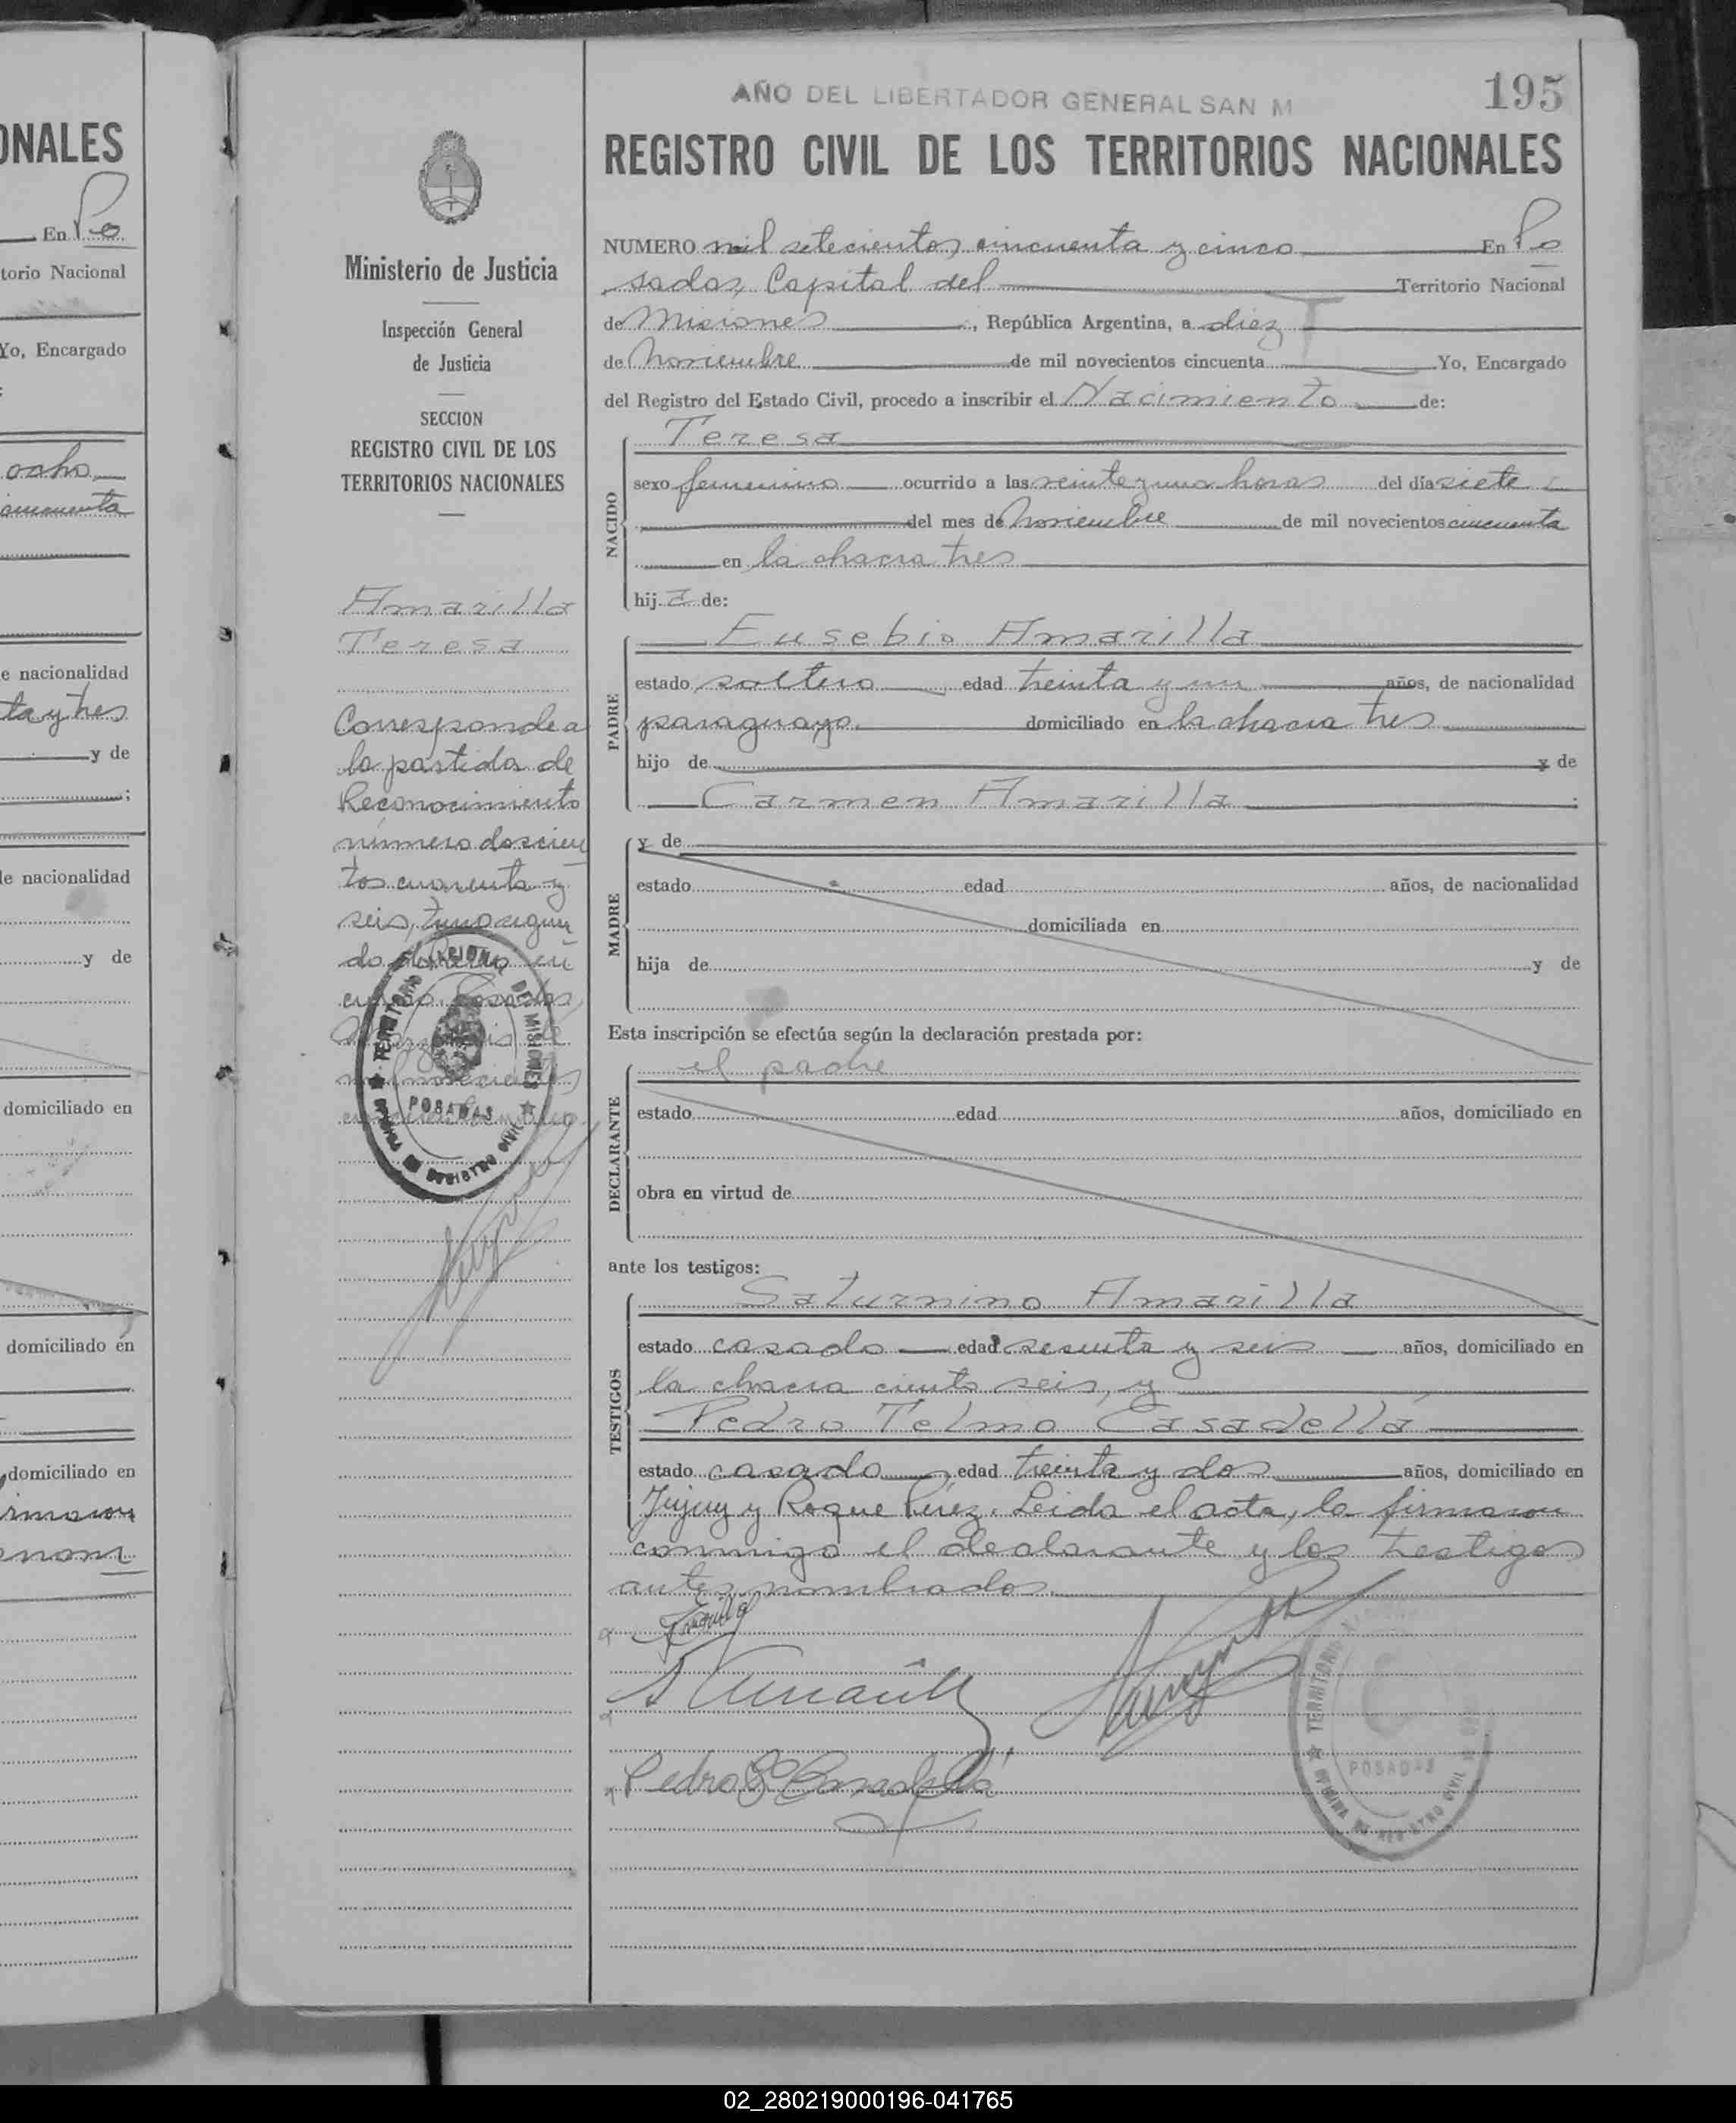 ONALES
En Po
torio Nacional
Yo, Encargado
ocho
cincuenta
e nacionalidad
ta y tres
y de
le nacionalidad
y de
domiciliado en
domiciliado en
domiciliado en
firmaron
Ministerio de Justicia
Inspección General
de Justicia
SECCION
REGISTRO CIVIL DE LOS
TERRITORIOS NACIONALES
Amarilla
Teresa
Corresponde a
la partida de
Reconocimiento
número doscien
tos cuarenta y
seis, tomo segun
do
Posadas
POSADAS
AÑO DEL LIBERTADOR GENERAL SAN M
195
REGISTRO CIVIL DE LOS TERRITORIOS NACIONALES
NUMERO mil setecientos cincuenta y cinco En Po
sadas, Capital del Territorio Nacional
de Misiones, República Argentina, a diez
de Noviembre de mil novecientos cincuenta Yo, Encargado
del Registro del Estado Civil, procedo a inscribir el Nacimiento de:
NACIDO
Teresa
sexo femenino ocurrido a las veinte y una horas del día siete
del mes de Noviembre de mil novecientos cincuenta
en la chacra tres
hij a de:
PADRE
Eusebio Amarilla
estado soltero edad treinta y un años, de nacionalidad
paraguayo domiciliado en la chacra tres
hijo de y de
Carmen Amarilla
MADRE
y de
estado edad años, de nacionalidad
domiciliada en
hija de y de
Esta inscripción se efectúa según la declaración prestada por:
DECLARANTE
el padre
estado edad años, domiciliado en
obra en virtud de
ante los testigos:
TESTIGOS
Saturnino Amarilla
estado casado edad sesenta y seis años, domiciliado en
la chacra ciento seis, y
Pedro Telmo Casadellá
estado casado edad treinta y dos años, domiciliado en
Jujuy y Roque Pérez. Leida el acta, la firmaron
conmigo el declarante y los testigos
antes nombrados.
Pedro T. Casadellá
TERRITORIO
POSADAS
OFICINA DE REGISTRO CIVIL
02_280219000196-041765